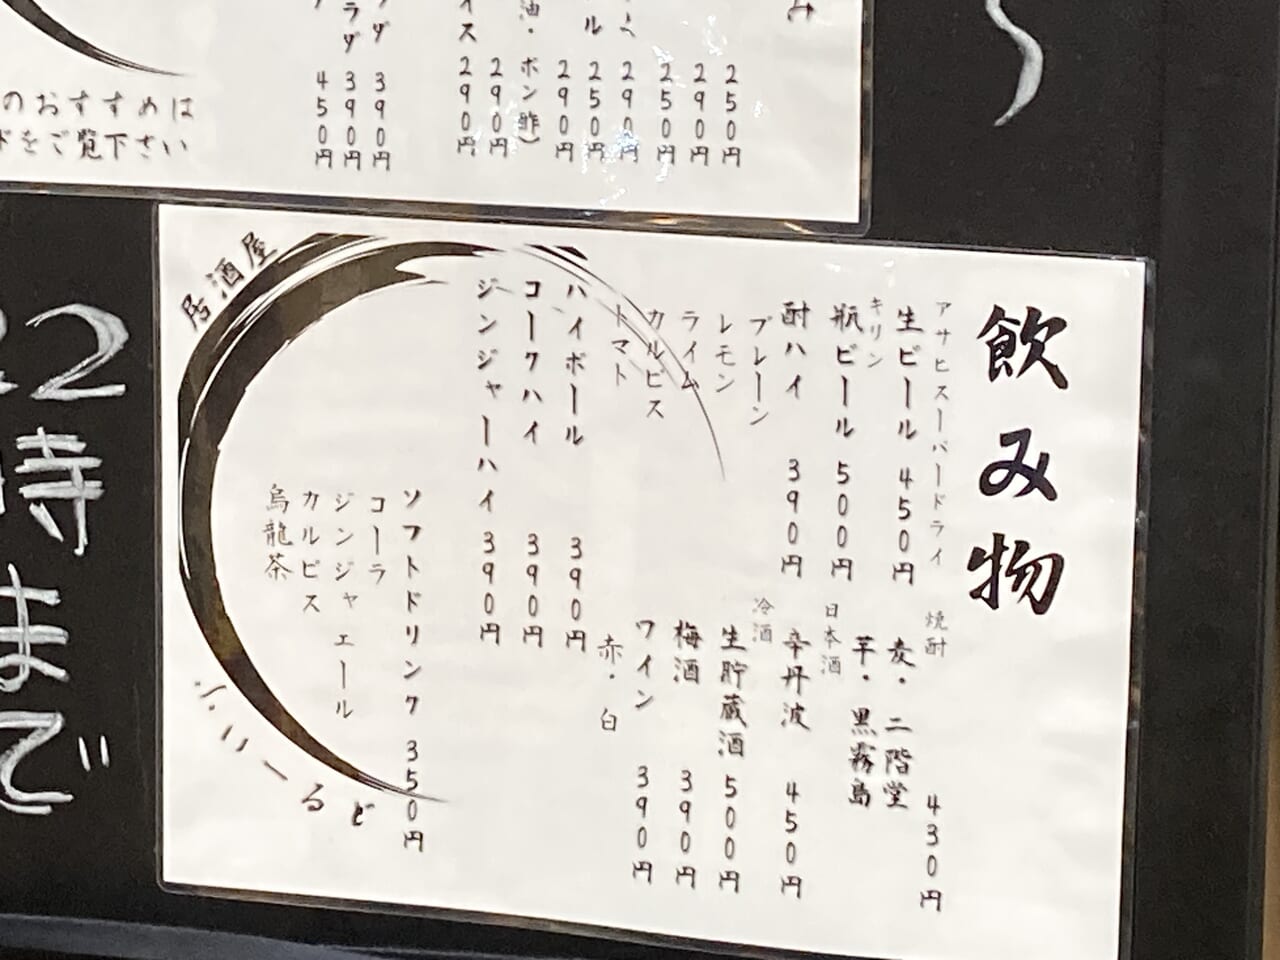 み
250円
290円
250円
290円
ル 250円
290円
油・ポン酢)
290円
イス 290円
ダ 390円
ラダ 390円
450円
のおすすめは
ドをご覧下さい
22
時
まで
居酒屋
飲み物
アサヒスーパードライ
生ビール 450円
キリン
瓶ビール 500円
酎ハイ 390円
プレーン
レモン
ライム
カルピス
トマト
ハイボール 390円
コークハイ 390円
ジンジャーハイ 390円
焼酎 430円
麦・二階堂
芋・黒霧島
日本酒
辛丹波 450円
冷酒
生貯蔵酒 500円
梅酒 390円
ワイン 390円
赤・白
ソフトドリンク 350円
コーラ
ジンジャエール
カルピス
烏龍茶